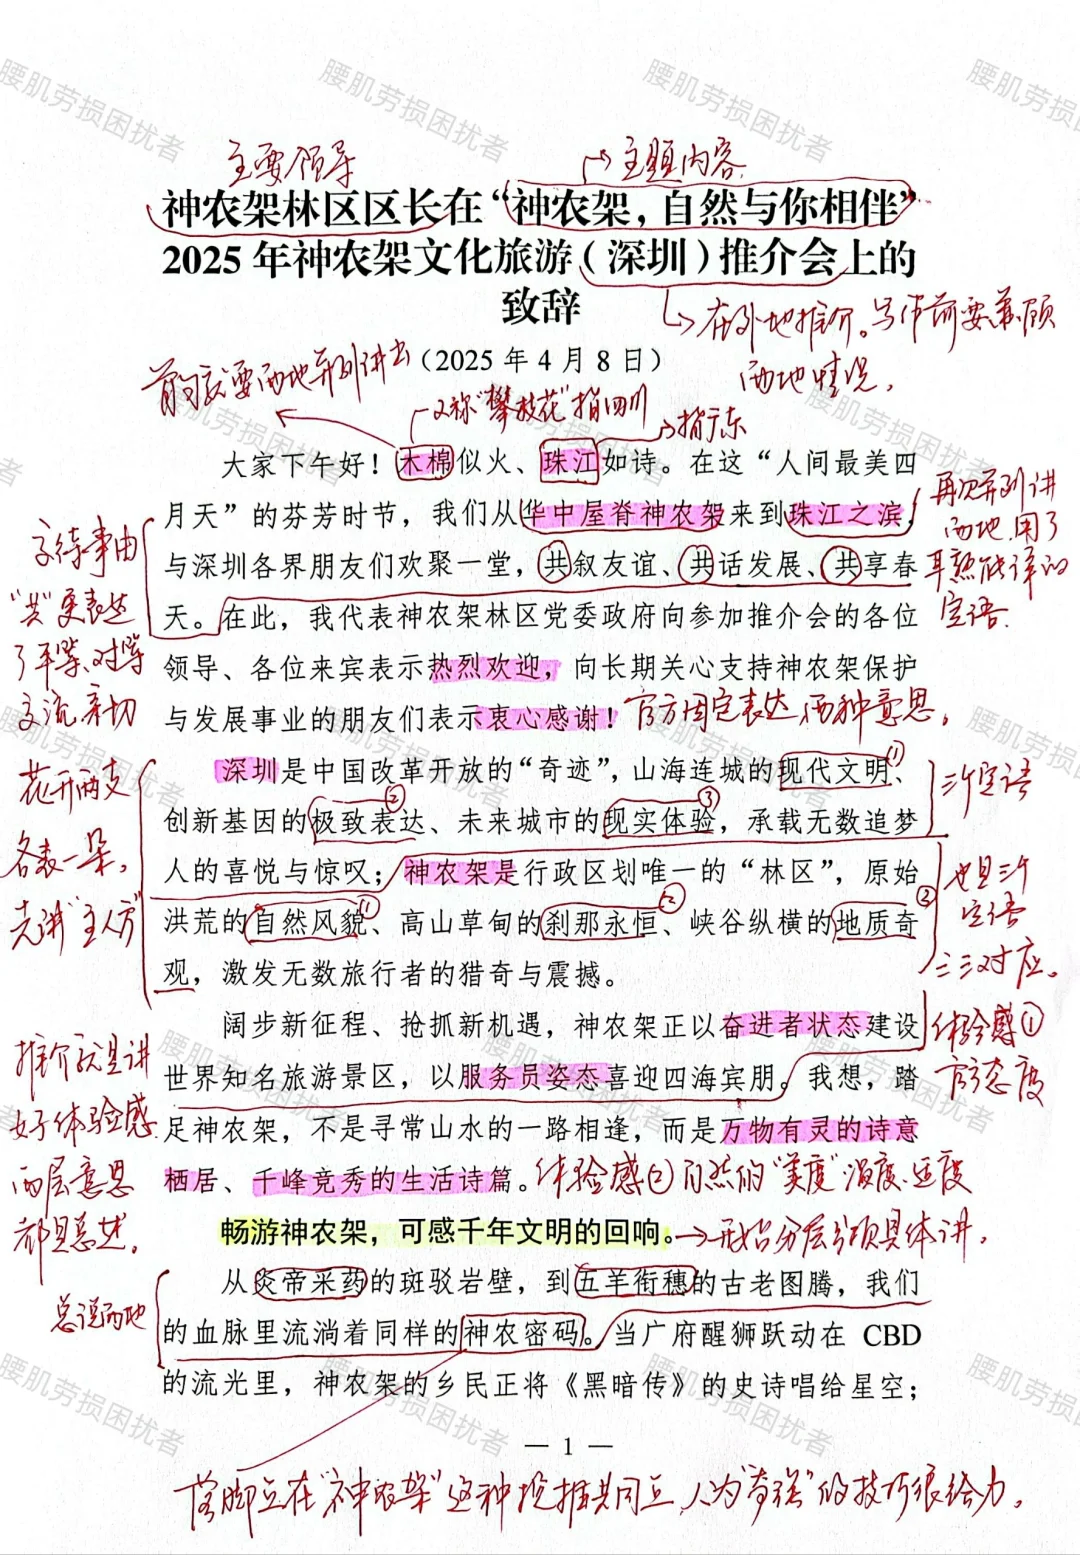 主要领导
主题内容
神农架林区区长在“神农架，自然与你相伴”
2025年神农架文化旅游（深圳）推介会上的
致辞
在外地推介。写作前要兼顾
两地情况。
（2025年4月8日）
首句就要两地并列讲出
又称“攀枝花”指四川
指广东
大家下午好！木棉似火、珠江如诗。在这“人间最美四
月天”的芬芳时节，我们从华中屋脊神农架来到珠江之滨，
与深圳各界朋友们欢聚一堂，共叙友谊、共话发展、共享春
天。在此，我代表神农架林区党委政府向参加推介会的各位
领导、各位来宾表示热烈欢迎，向长期关心支持神农架保护
与发展事业的朋友们表示衷心感谢！
再次并列讲
两地，用了
耳熟能详的
定语。
交待事由
“共”更表达
了平等、对等
交流亲切
官方固定表达，两种意思。
深圳是中国改革开放的“奇迹”，山海连城的现代文明、
创新基因的极致表达、未来城市的现实体验，承载无数追梦
人的喜悦与惊叹；神农架是行政区划唯一的“林区”，原始
洪荒的自然风貌、高山草甸的刹那永恒、峡谷纵横的地质奇
观，激发无数旅行者的猎奇与震撼。
①
②
③
①
②
③
三个定语
也是三个
定语
三三对应。
花开两支
各表一朵，
先讲“主人方”
阔步新征程、抢抓新机遇，神农架正以奋进者状态建设
世界知名旅游景区，以服务员姿态喜迎四海宾朋。我想，踏
足神农架，不是寻常山水的一路相逢，而是万物有灵的诗意
栖居、千峰竞秀的生活诗篇。
体验感①
官方态度
推介就是讲
好体验感
两层意思
都是总述。
体验感②自然的“美度”温度、适度
畅游神农架，可感千年文明的回响。
开始分层分项具体讲。
从炎帝采药的斑驳岩壁，到五羊衔穗的古老图腾，我们
的血脉里流淌着同样的神农密码。当广府醒狮跃动在 CBD
的流光里，神农架的乡民正将《黑暗传》的史诗唱给星空；
总说两地
— 1 —
落脚点在“神农架”这种挖掘共同点，人为“夸强”的技巧很给力。
腰肌劳损困扰者